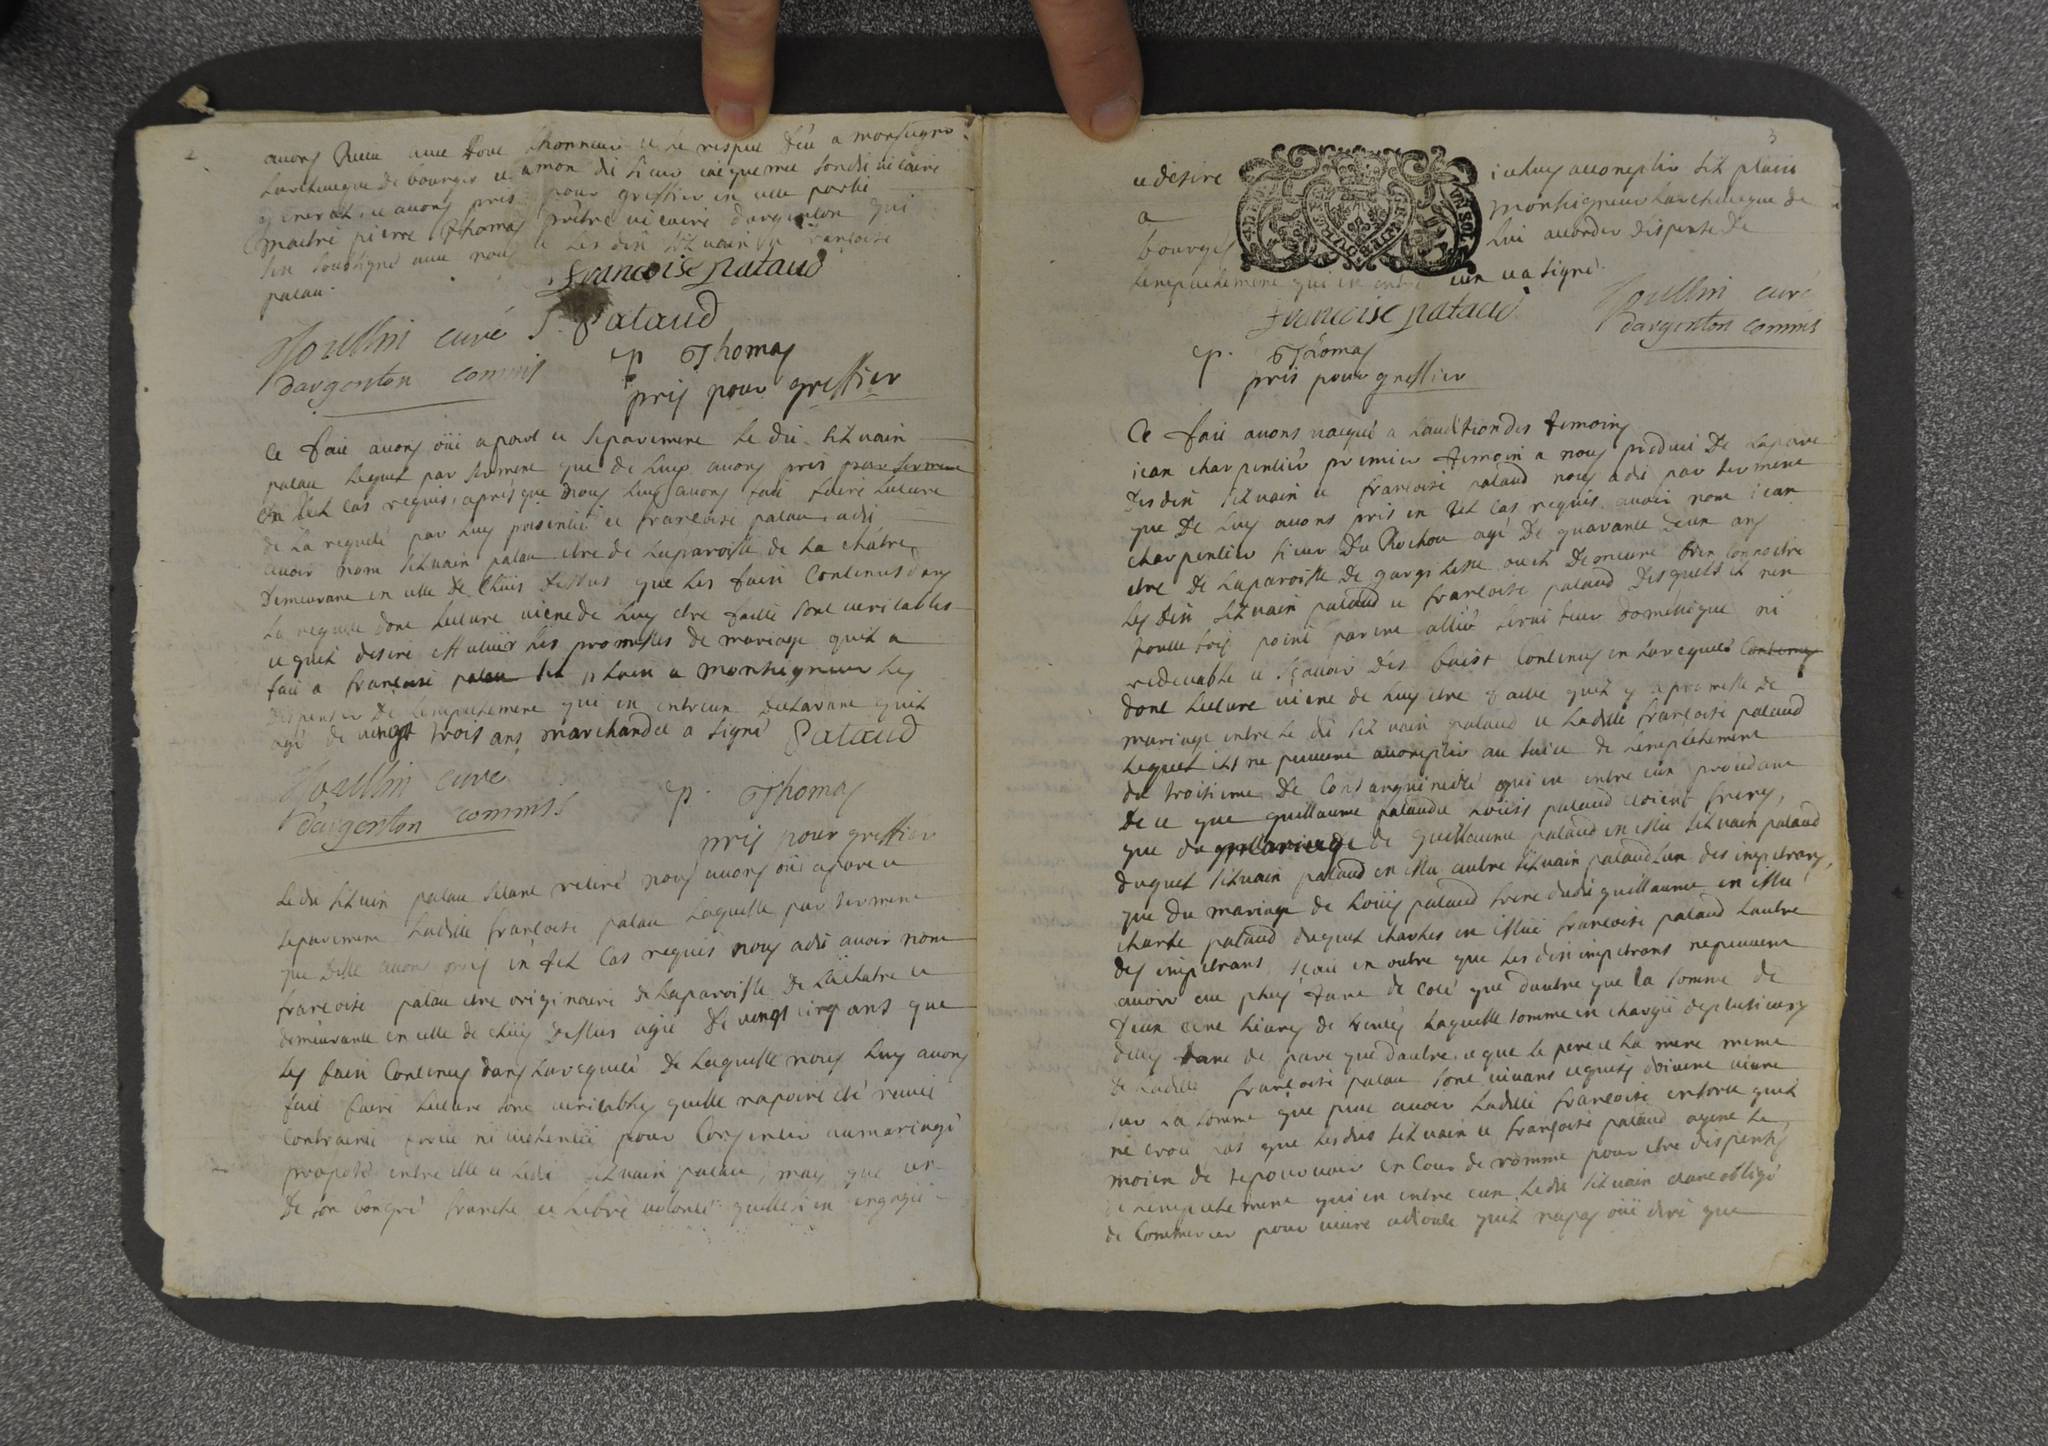 2
avons Receu avec Tout L'honneur et Le respect deu a monseigneur
Larcheveque de bourges et a mon dit sieur son dit vicaire
general, et avons pris pour greffier en cette partie
maitre pierre Thomas prêtre vicaire dargenton qui
sen soussigné avec nous et Les dits silvain et francoise
palau.
francoise pataud
S. Pataud
curé
dargenton commis
p Thomas
pris pour greffier
Ce fait avons oüi apart et separement Le dit silvain
palau Lequel par serment que de Luy avons pris par serment
en tel cas requis, apres que nous Luy avons fait faire Lecture
de La requete par Luy presentée et francoise palau, a dit
avoir nom silvain palau etre de Laparoisse de La châtre
demeurant en ville de Cluis dessus que Les faits Contenus dans
La requete dont Lecture vient de Luy etre faitte sont veritables
et quil desire effectuer Les promesses de mariage quil a
fait a francoise palau sil plait a monseigneur Les
dispenser de Lempechement qui est entreux declarant quil
agé de vingt trois ans marchand et a signé Pataud
curé
dargenton commis.
p. Thomas
pris pour greffier
Le dit silvain palau setant retiré nous avons oüi apart et
separement Laditte francoise palau Laquelle par serment
que delle avons pris en tel cas requis nous a dit avoir nom
francoise palau etre originaire de Laparoisse de Lachatre et
demeurante en ville de cluis dessus agée de vingt cinq ans que
Les faits Contenus dans Larequete de Laquelle nous Luy avons
fait faire Lecture sont veritables quelle na point été
contrainte forcée ni violentée pour Consentir au mariage
proposé entre elle et Ledit silvain palau, mais que cest
de son bon gré franche et Libre volonté quelle sen engagée
3
et desire iceluy accomplir sil plait
a monseigneur Larcheveque de
bourges Lui accorder dispense de
Lempechement qui est entre eux et a signé.
UN SOL
francoise pataud
curé
dargenton commis
p. Thomas
pris pour greffier
Ce fait avons vacqué a Laudition des temoins
jean charpentier premier temoin a nous produit de Lapart
desdits silvain et francoise pataud nous a dit par serment
que de Luy avons pris en tel cas requis avoir nom jean
charpentier sieur Du Rochou agé de quarante deux ans
etre de Laparoisse de gargilesse ou il demeure bien connoitre
Les dits silvain pataud et francoise pataud desquels il nest
toutte fois point parent allié serviteur domestique ni
redevable et scavoir des faits Contenus en Larequete Contenus
dont Lecture vient de Luy etre faitte quil y a promesse de
mariage entre Le dit silvain pataud et Laditte francoise pataud
Lequel ils ne peuvent accomplir au sujet de Lempechement
du troisieme de Consanguinité qui est entre eux procedant
de ce que guillaume pataud et Loüis pataud etoient freres,
que du mariage de guillaume pataud est issu silvain pataud
duquel silvain pataud est issu autre silvain pataud Lun des impetrans,
que du mariage de Loüis pataud frere dudit guillaume est issu
charle pataud duquel charles est issüe francoise pataud Lautre
des impetrans, scait en outre que Les dits impetrans ne peuvent
avoir eue plus tant de coté que dautre que la somme de
deux cent Livres de Laquelle somme est chargée de plusieurs
dettes tant de part que dautre, et que Le pere et La mere meme
de Laditte francoise palau sont vivans et quils doivent vivre
sur La somme que peut avoir Laditte francoise en sorte quil
ne croit pas que Lesdits silvain et francoise pataud ayent Le
moien de se pourvoir en Cour de romme pour etre dispensés
de Lempechement qui est entre eux Ledit silvain etant obligé
de Commercer pour vivre adjoute quil na pas oüi dire que